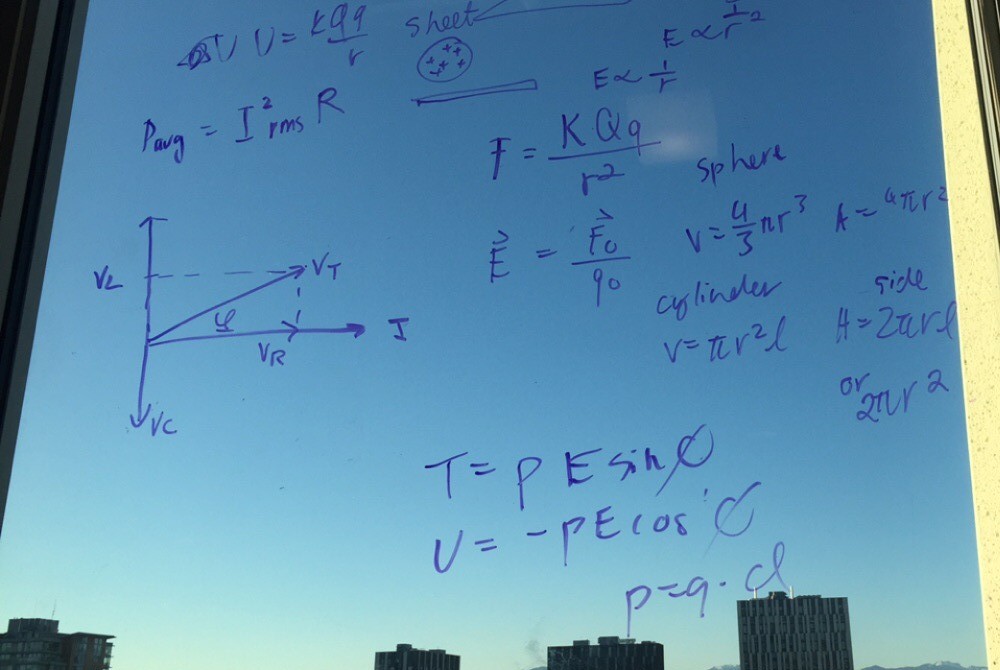 U U = kQq/r
Sheet
E ∝ 1/r²
E ∝ 1/r
Pavg = I²rms R
F = KQq/r²
E⃗ = F⃗₀/q₀
sphere
V = 4/3 πr³ A = 4πr²
cylinder side
V = πr²l A = 2πrl
or 2πr²
VL VT
φ
VR I
VC
T = pE sin∅
U = -pE cos∅
p = q · d